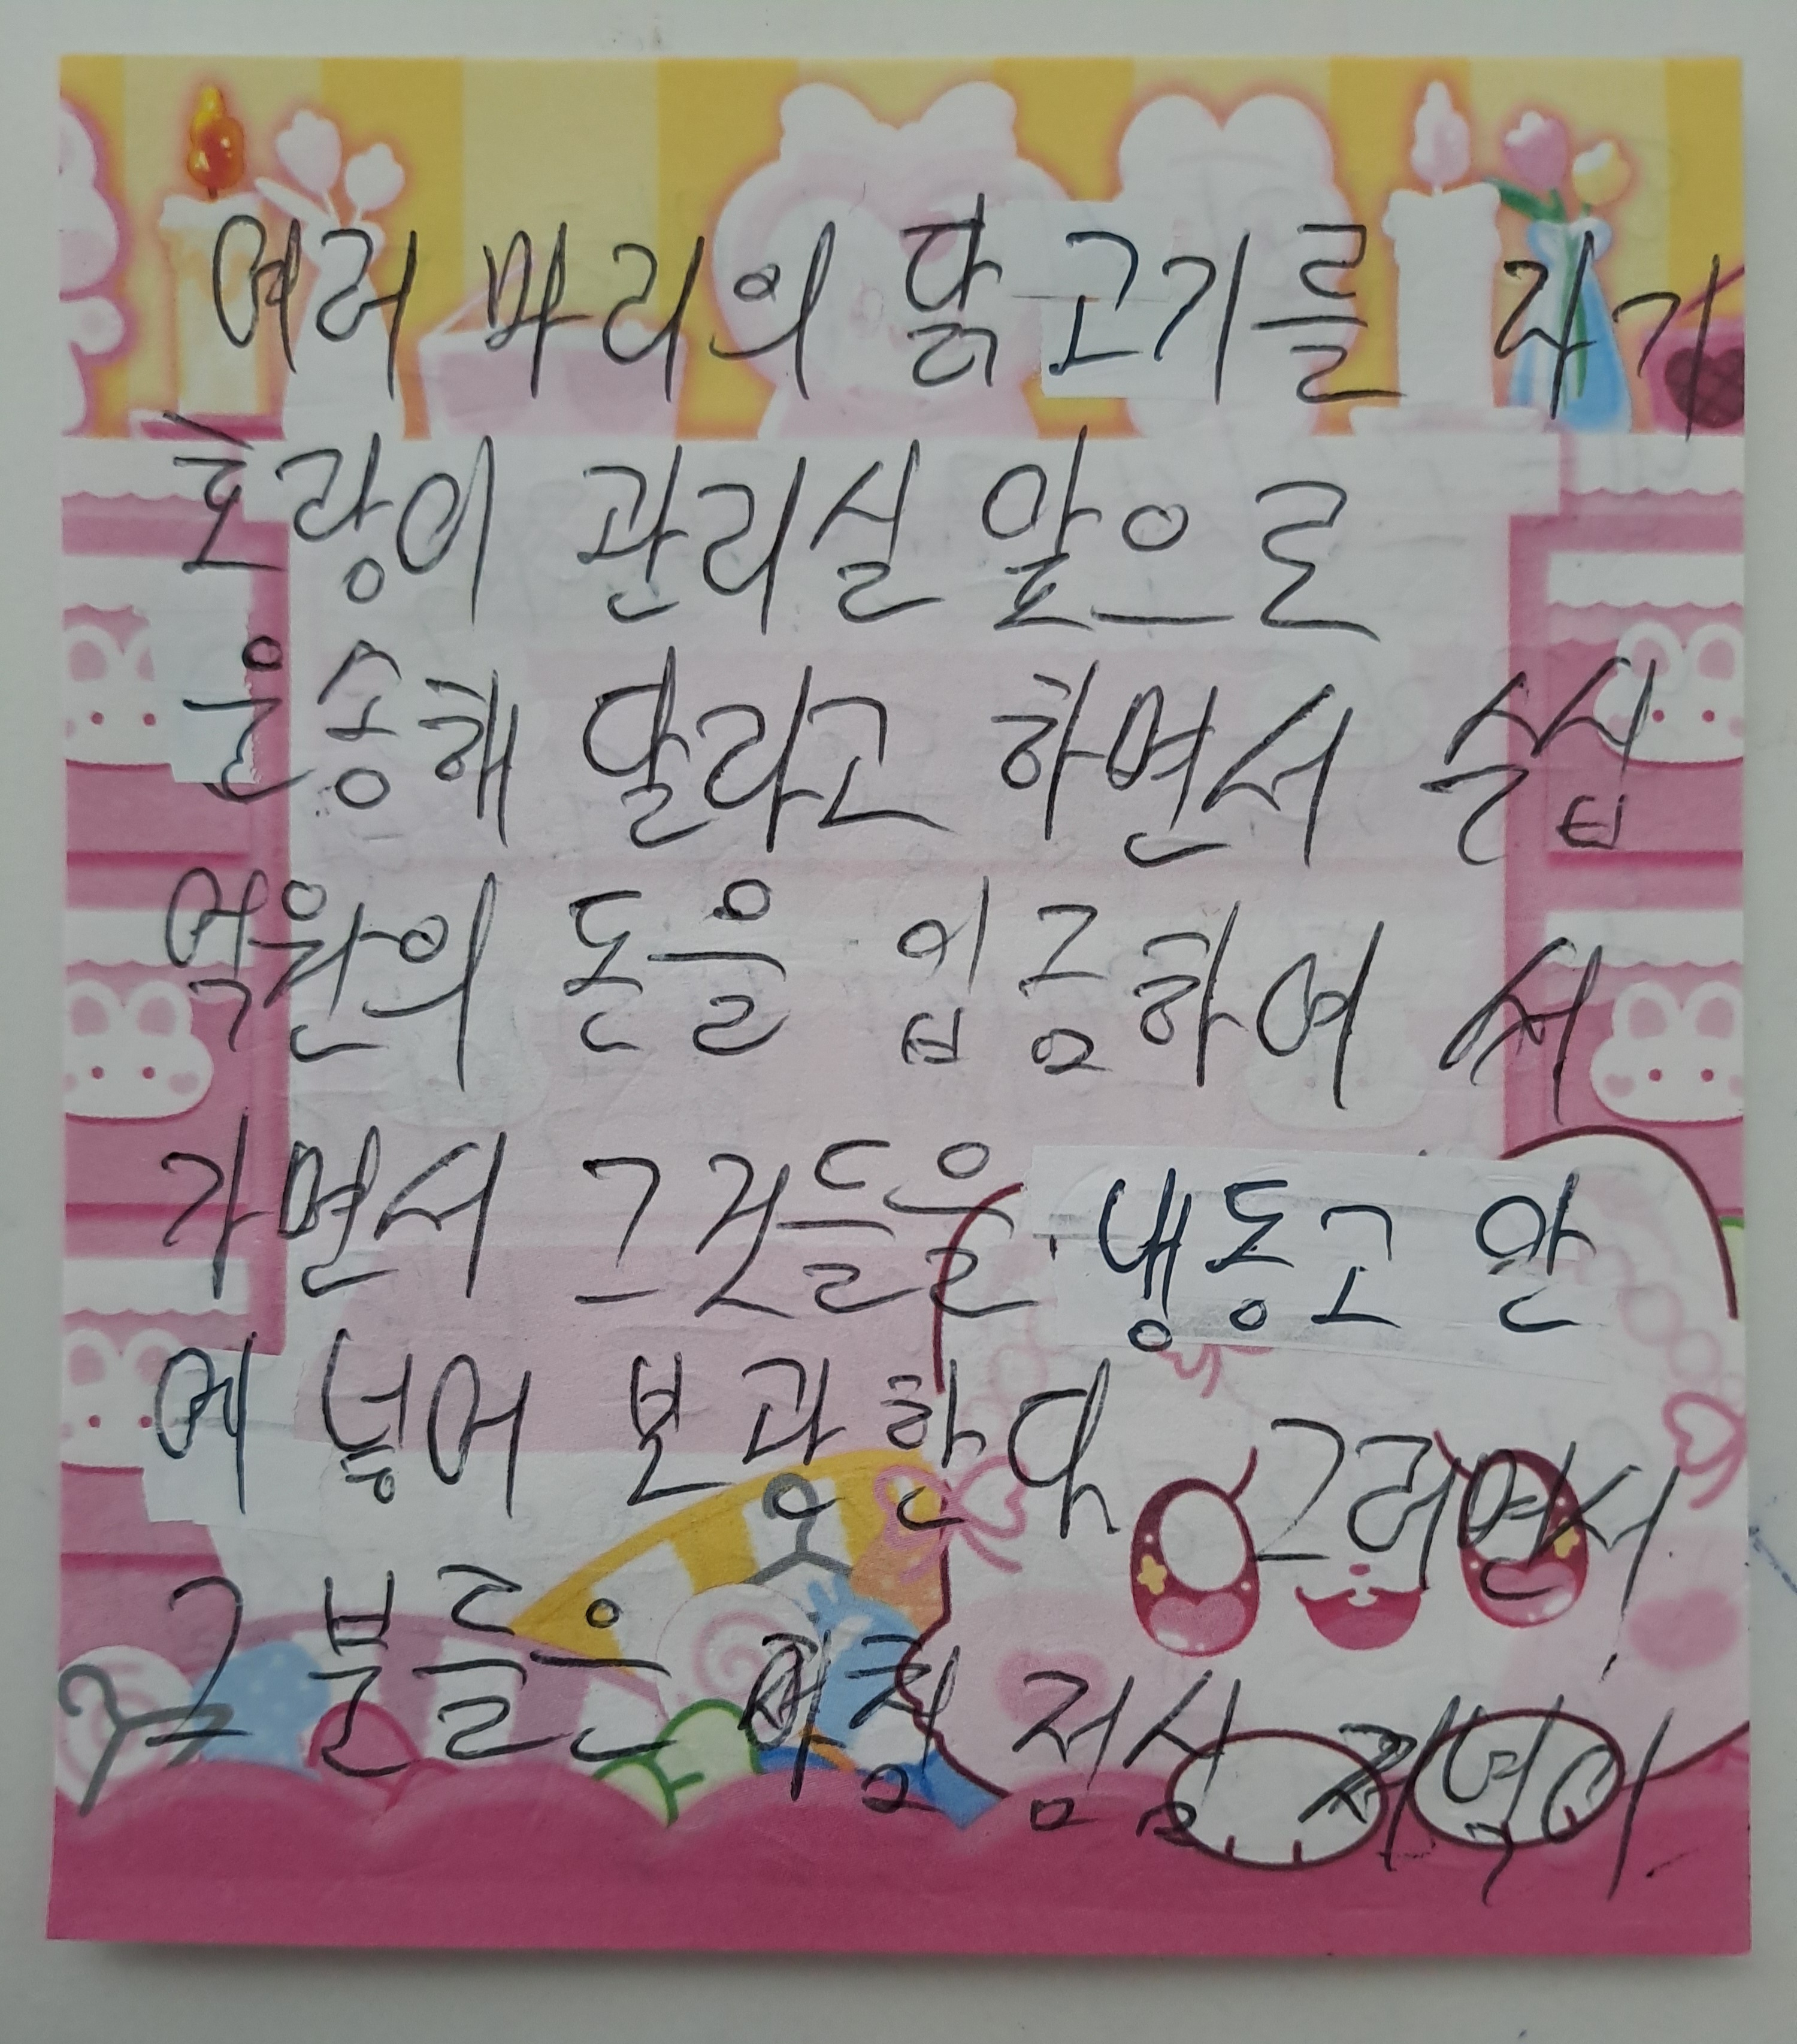 여러 마리의 닭고기를 자기
호랑이 관리실 앞으로
운송해 달라고 하면서 수십
억원의 돈을 입금하여 서
가면서 그것들을 냉동고 안
에 넣어 보관한다 그러면서
그 분들은 아침 점심 저녁이